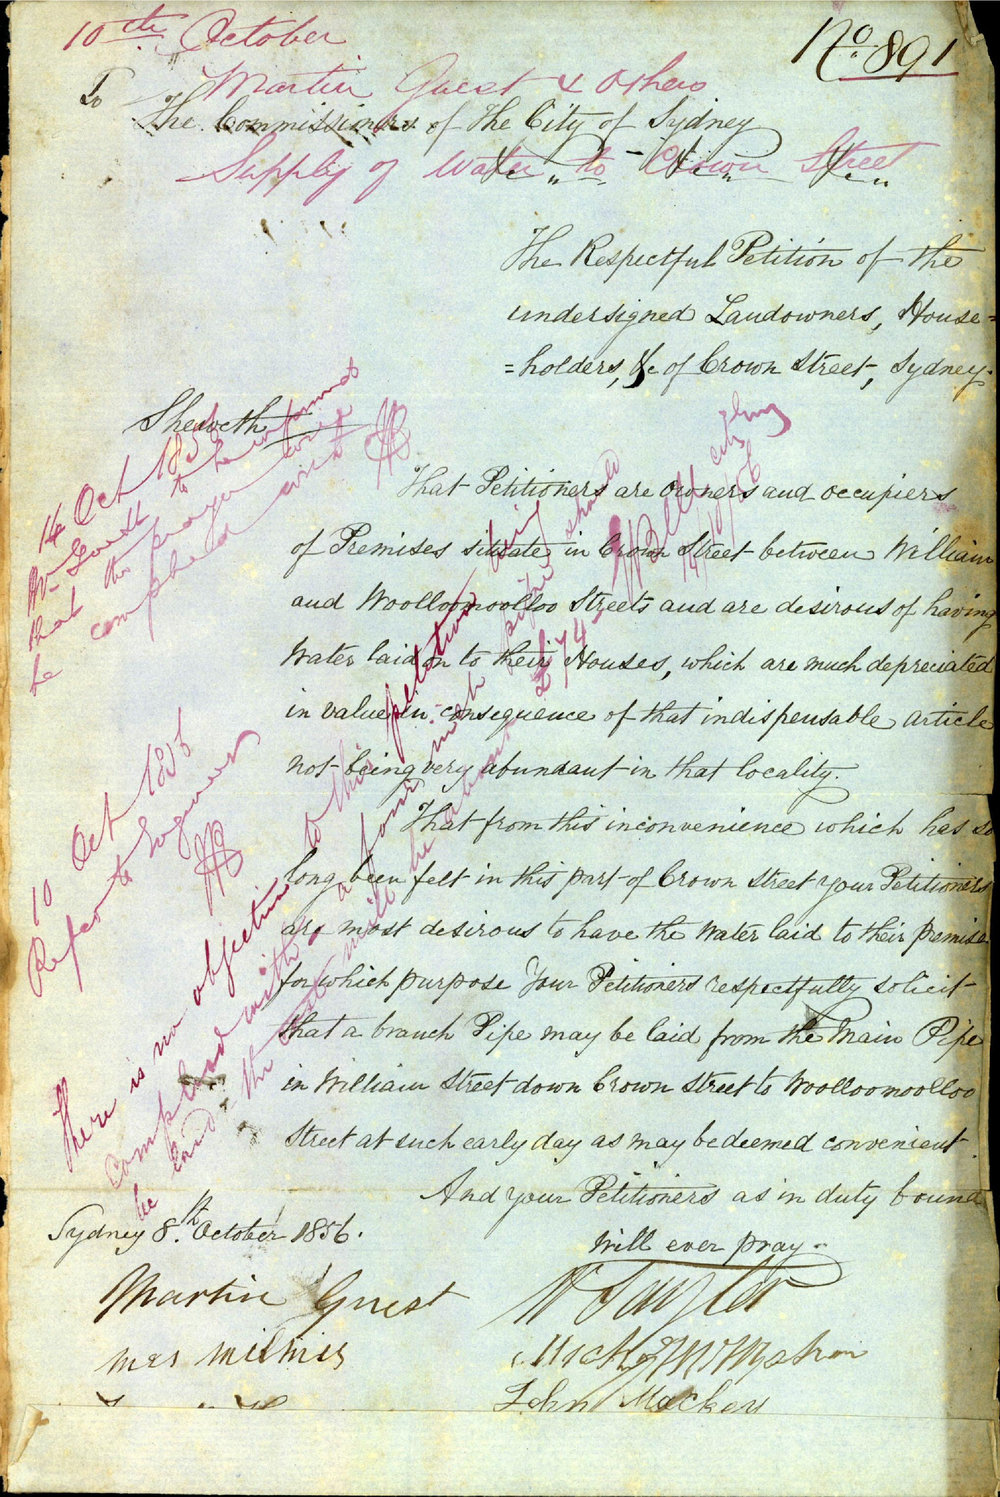 10th October
No. 891
Martin Guest & Others
To The Commissioners of The City of Sydney
Supply of Water to Crown Street
The Respectful Petition of the
undersigned Landowners, House=
=holders, &c of Crown Street, Sydney.
Sheweth
That Petitioners are owners and occupiers
of Premises situate in Crown Street between William
and Woolloomoolloo Streets and are desirous of having
Water laid on to their Houses, which are much depreciated
in value in consequence of that indispensable article
not being very abundant in that locality.
That from this inconvenience which has so
long been felt in this part of Crown Street your Petitioners
are most desirous to have the Water laid to their premise
for which purpose Your Petitioners respectfully solicit
that a branch Pipe may be laid from the Main Pipe
in William Street down Crown Street to Woolloomoolloo
Street at such early day as may be deemed convenient.
And your Petitioners as in duty bound
Will ever pray
Sydney 8th October 1856.
Martin Guest
W Taylor
Mahon
John Mackey
14 Oct 1856
Mr Guest to be informed
that the prayer will
be complied with
10 Oct 1856
Refer to Engineer
There is no objection to this petition being
complied with a four inch pipe should
be laid the cost will be about £74
W Bell City Eng
14/10/56